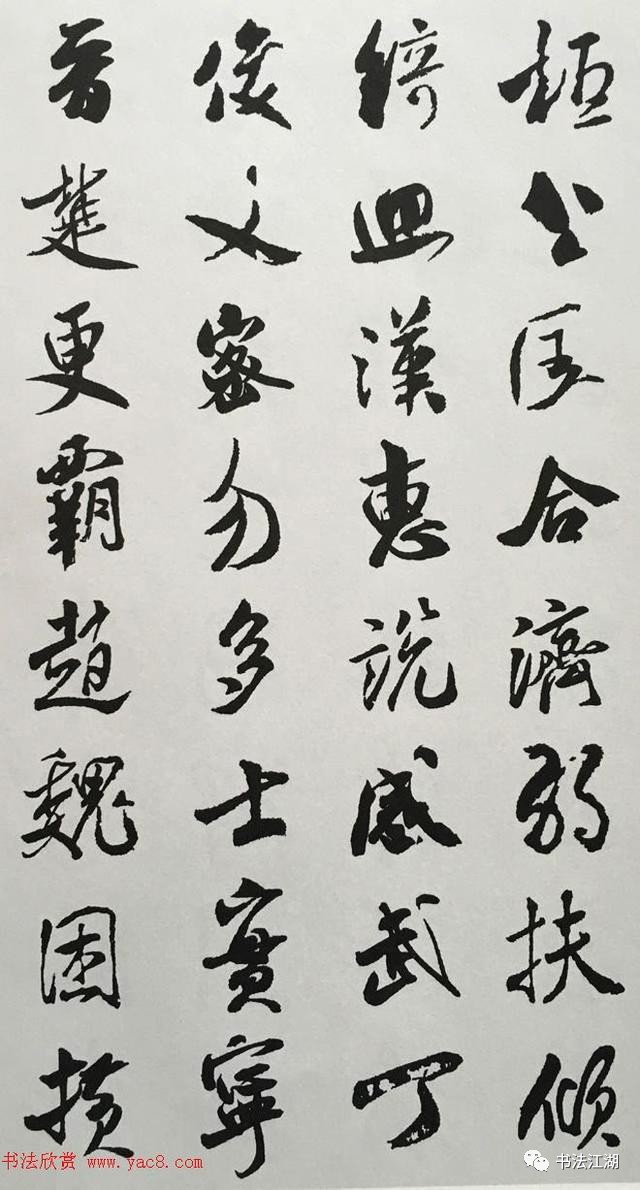 桓公匡合濟弱扶傾
綺迴漢惠說感武丁
俊乂密勿多士寔寧
晉楚更霸趙魏困橫
书法欣赏 www.yac8.com
书法江湖